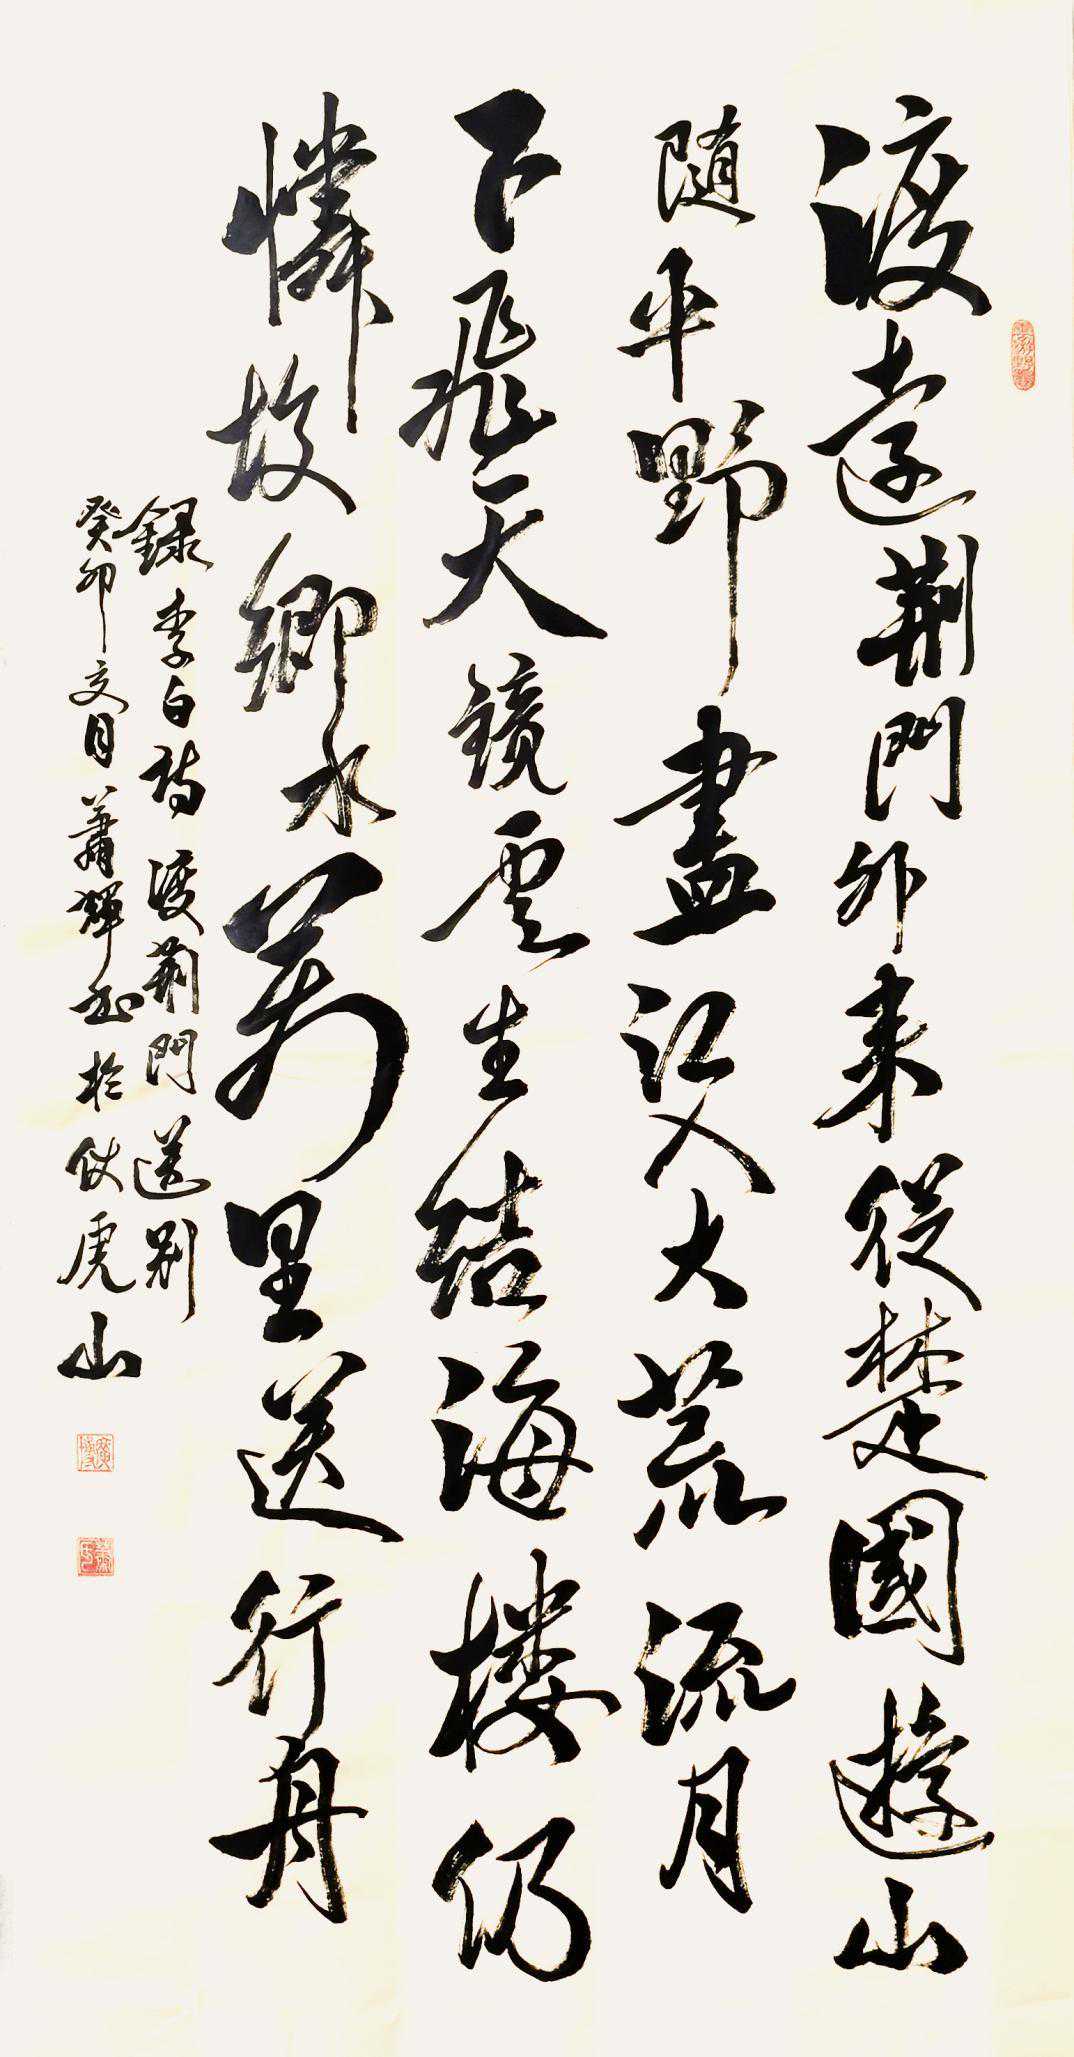 渡遠荆門外来從楚國遊山
随平野盡江入大荒流月
下飛天鏡雲生结海楼仍
憐故鄉水萬里送行舟
録李白詩渡荆門送别
癸卯文月蕭輝書於伏虎山